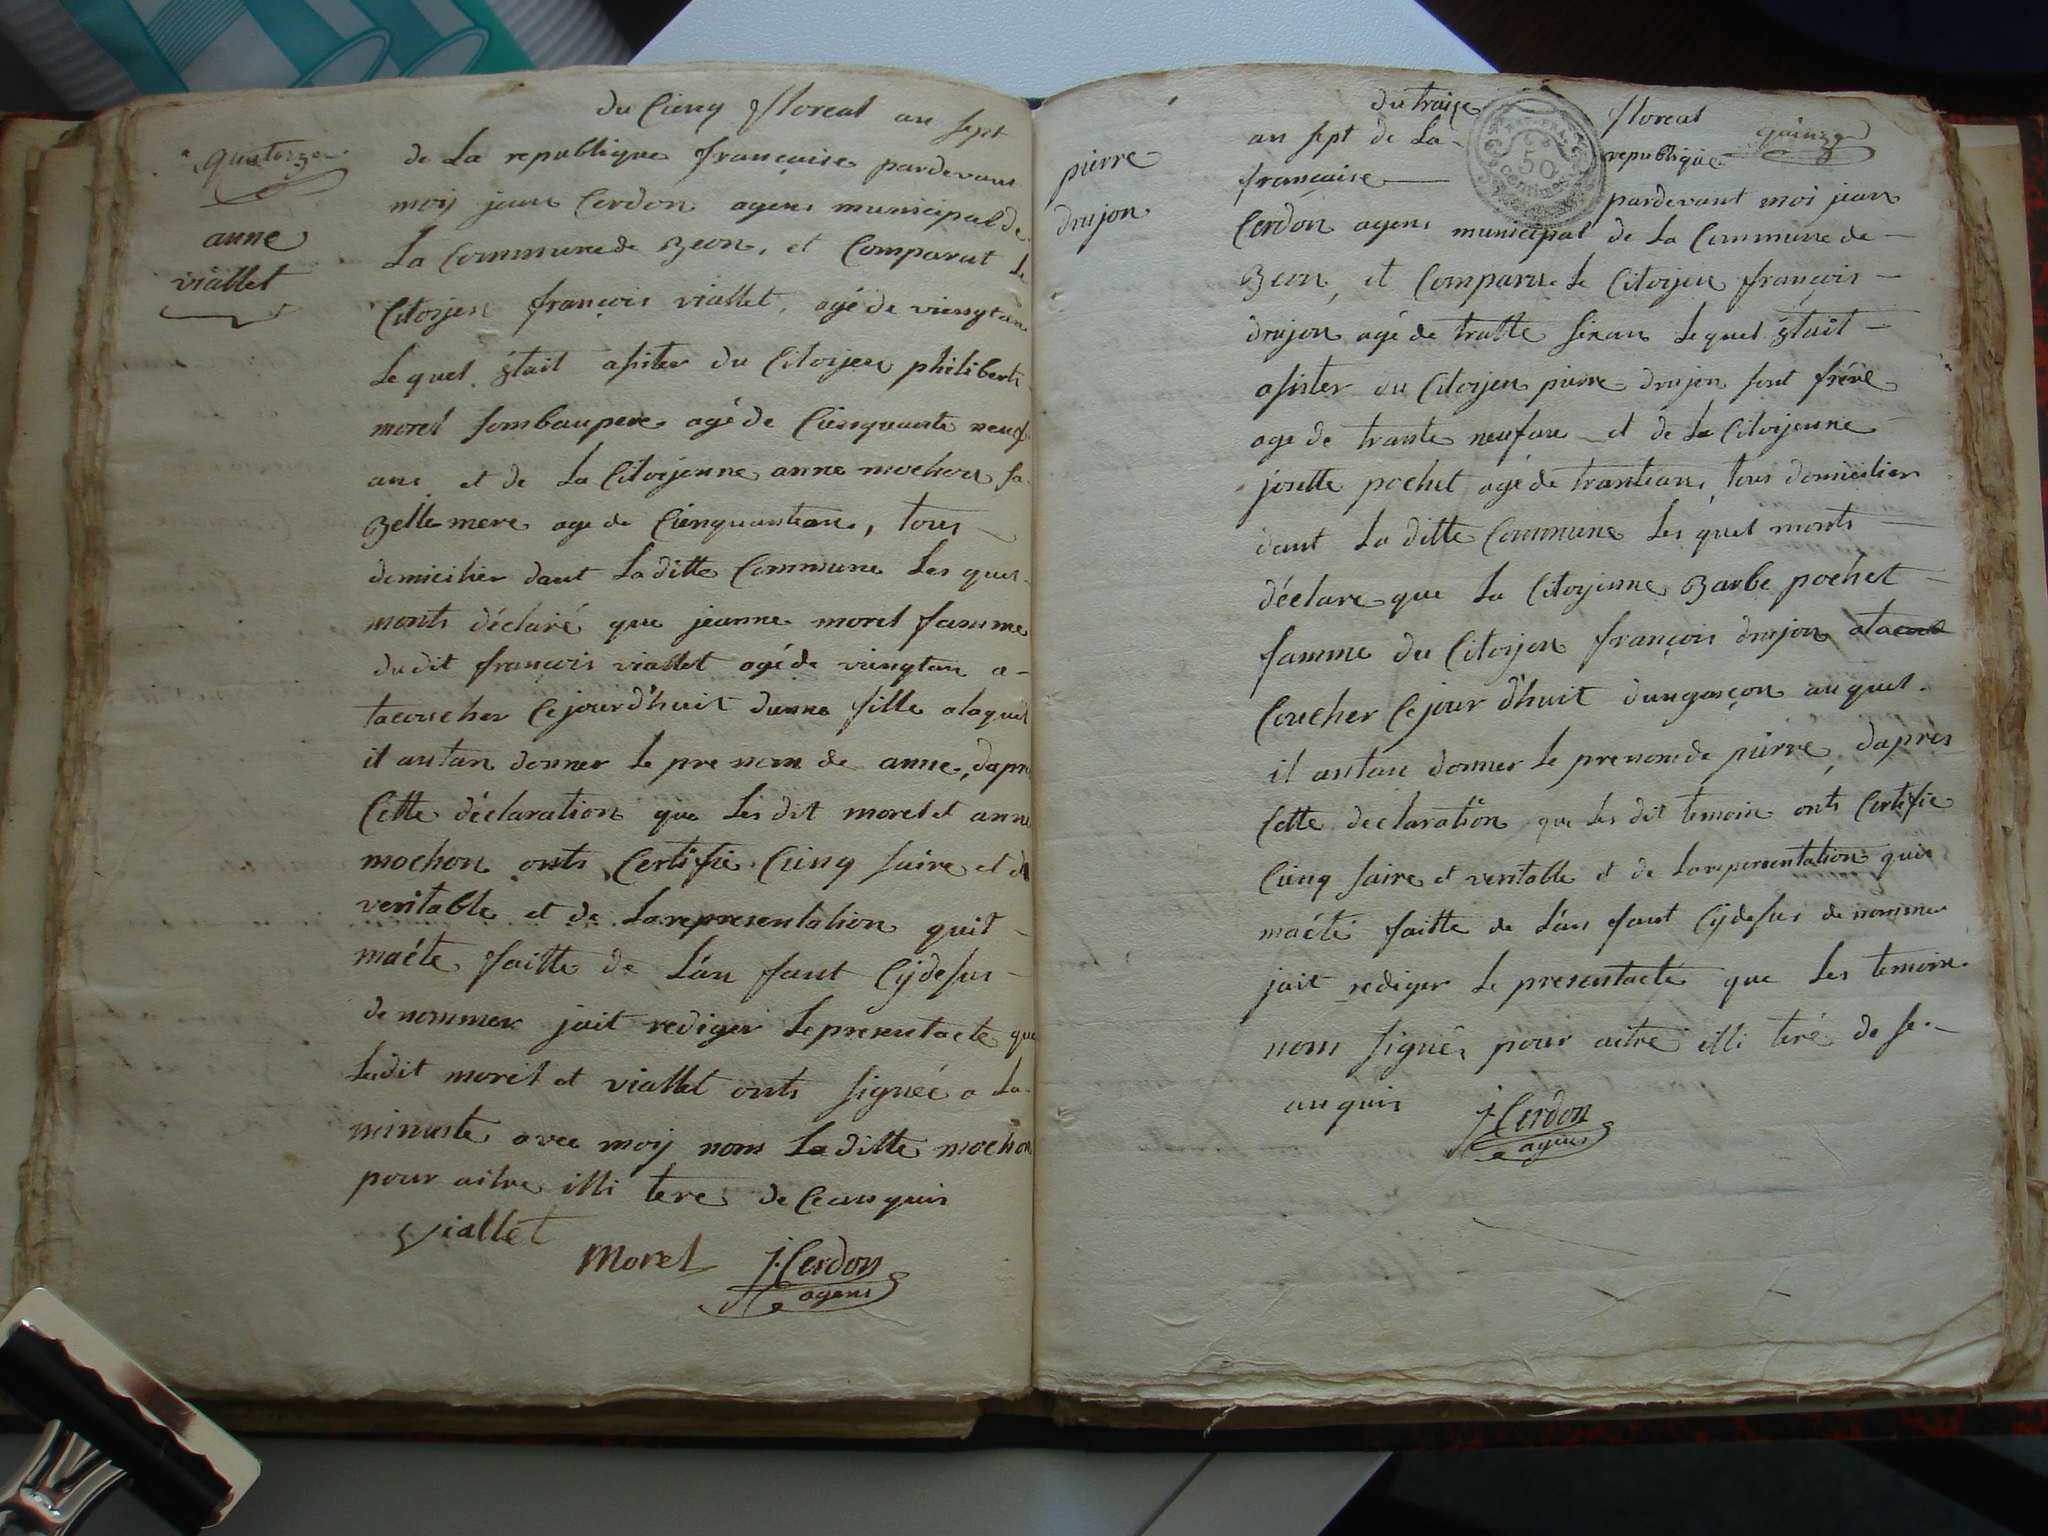 quatorze
anne
viallet
du Cienq floreal an sept
de La republique française pardevant
moij jean Cerdon agens municipal de
La Commune de Beon, et Comparut Le
Citoijen françois viallet, agé de viengt an
Le quel s'etait asister du Citoijen philiberts
morel sombaupere agé de Cienquante neuf
ans et de La Citoijenne anne mochon sa
Belle mere age de Cienquante an, tous
domicilier dant La ditte Commune Les quel
monts déclaré que jeanne morel famme
du dit françois viallet agé de viengtan a-
tacoucher Ce jour d'huit dunne fille alaquel
il antan donner Le pre nom de anne, dapre
Cette déclaration que Les dit morel et anne
mochon onts Certifie Cienq saire et de
veritable et de Lareprésentation quit
maéte faitte de L'an fant Cij desus
de nommer jait rediger Le present acte que
Les dit morel et viallet onts signeé a La
minuste avec moij nom La ditte mochon
pour aitre illi tere de Ce anquis
Viallet
Morel
j. Cerdon
agens
pierre
drujon
quinze
du traize floreal
an sept de La republique
française pardevant moi jean
Cerdon agens municipal de La Commune de
Beon, et Comparu Le Citoijen françois
drujon agé de tratte sixan Le quel s'etait
asister du Citoijen pierre drujon sont frère
age de trante neufan et de La Citoijenne
josette pochet agé de trantean, tous domicilier
dant La ditte Commune Les quel monts
déclare que La Citoijenne Barbe pochet
famme du Citoijen françois drujon ata
Coucher Ce jour d'huit dungarçon au quel
il antan donner Le prenom de pierre, daprès
Cette declaration que Les dit temoin onts Certifie
Cienq saire et veritable et de Lareprésentation quit
maéte faitte de L'an fant Cij desus de nommer
jait rediger Le present acte que Les temoin
nom signée pour aitre illi teré de se
anquis
j. Cerdon
agens
50
Centimes